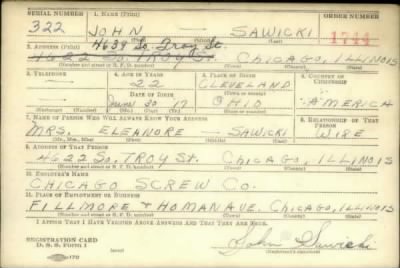 SERIAL NUMBER 1. NAME (Print) ORDER NUMBER
322 JOHN — SAWICKI 1744
(First) (Middle) (Last)
4639 So. Troy St.
2. ADDRESS (Print)
4622 So. TROY St. CHICAGO, ILLINOIS
(Number and street or R. F. D. number) (Town) (County) (State)
3. TELEPHONE 4. AGE IN YEARS 5. PLACE OF BIRTH 6. COUNTRY OF CITIZENSHIP
— 22 CLEVELAND
DATE OF BIRTH (Town or county)
June 30 17 OHIO AMERICA
(Exchange) (Number) (Mo.) (Day) (Yr.) (State or country)
7. NAME OF PERSON WHO WILL ALWAYS KNOW YOUR ADDRESS 8. RELATIONSHIP OF THAT PERSON
MRS. ELEANORE — SAWICKI WIFE
(Mr., Mrs., Miss) (First) (Middle) (Last)
9. ADDRESS OF THAT PERSON
4622 So. TROY St. CHICAGO, ILLINOIS
(Number and street or R. F. D. number) (Town) (County) (State)
10. EMPLOYER'S NAME
CHICAGO SCREW Co.
11. PLACE OF EMPLOYMENT OR BUSINESS
FILLMORE + HOMAN AVE. CHICAGO, ILLINOIS
(Number and street or R. F. D. number) (Town) (County) (State)
I AFFIRM THAT I HAVE VERIFIED ABOVE ANSWERS AND THAT THEY ARE TRUE.
REGISTRATION CARD
D. S. S. Form 1 John Sawicki
(Registrant's signature)